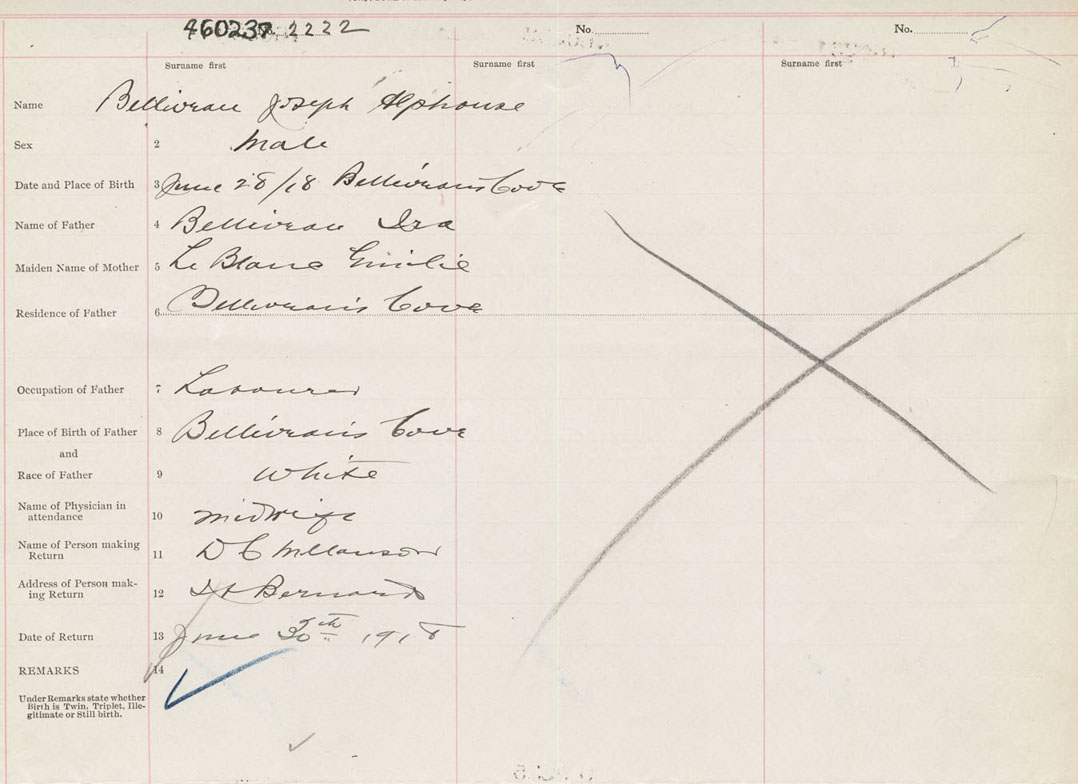 2222 No. No.
Surname first Surname first Surname first
Name Belliveau Joseph Alphonse
Sex 2 Male
Date and Place of Birth 3 June 28/18 Belliveau's Cove
Name of Father 4 Belliveau Ira
Maiden Name of Mother 5 Le Blanc Emilie
Residence of Father 6 Belliveau's Cove
Occupation of Father 7 Labourer
Place of Birth of Father 8 Belliveau's Cove
and
Race of Father 9 White
Name of Physician in
attendance 10 midwife
Name of Person making
Return 11 D C Melanson
Address of Person mak-
ing Return 12 St Bernard
Date of Return 13 June 30th 1918
REMARKS 14
Under Remarks state whether
Birth is Twin, Triplet, Ille-
gitimate or Still birth.